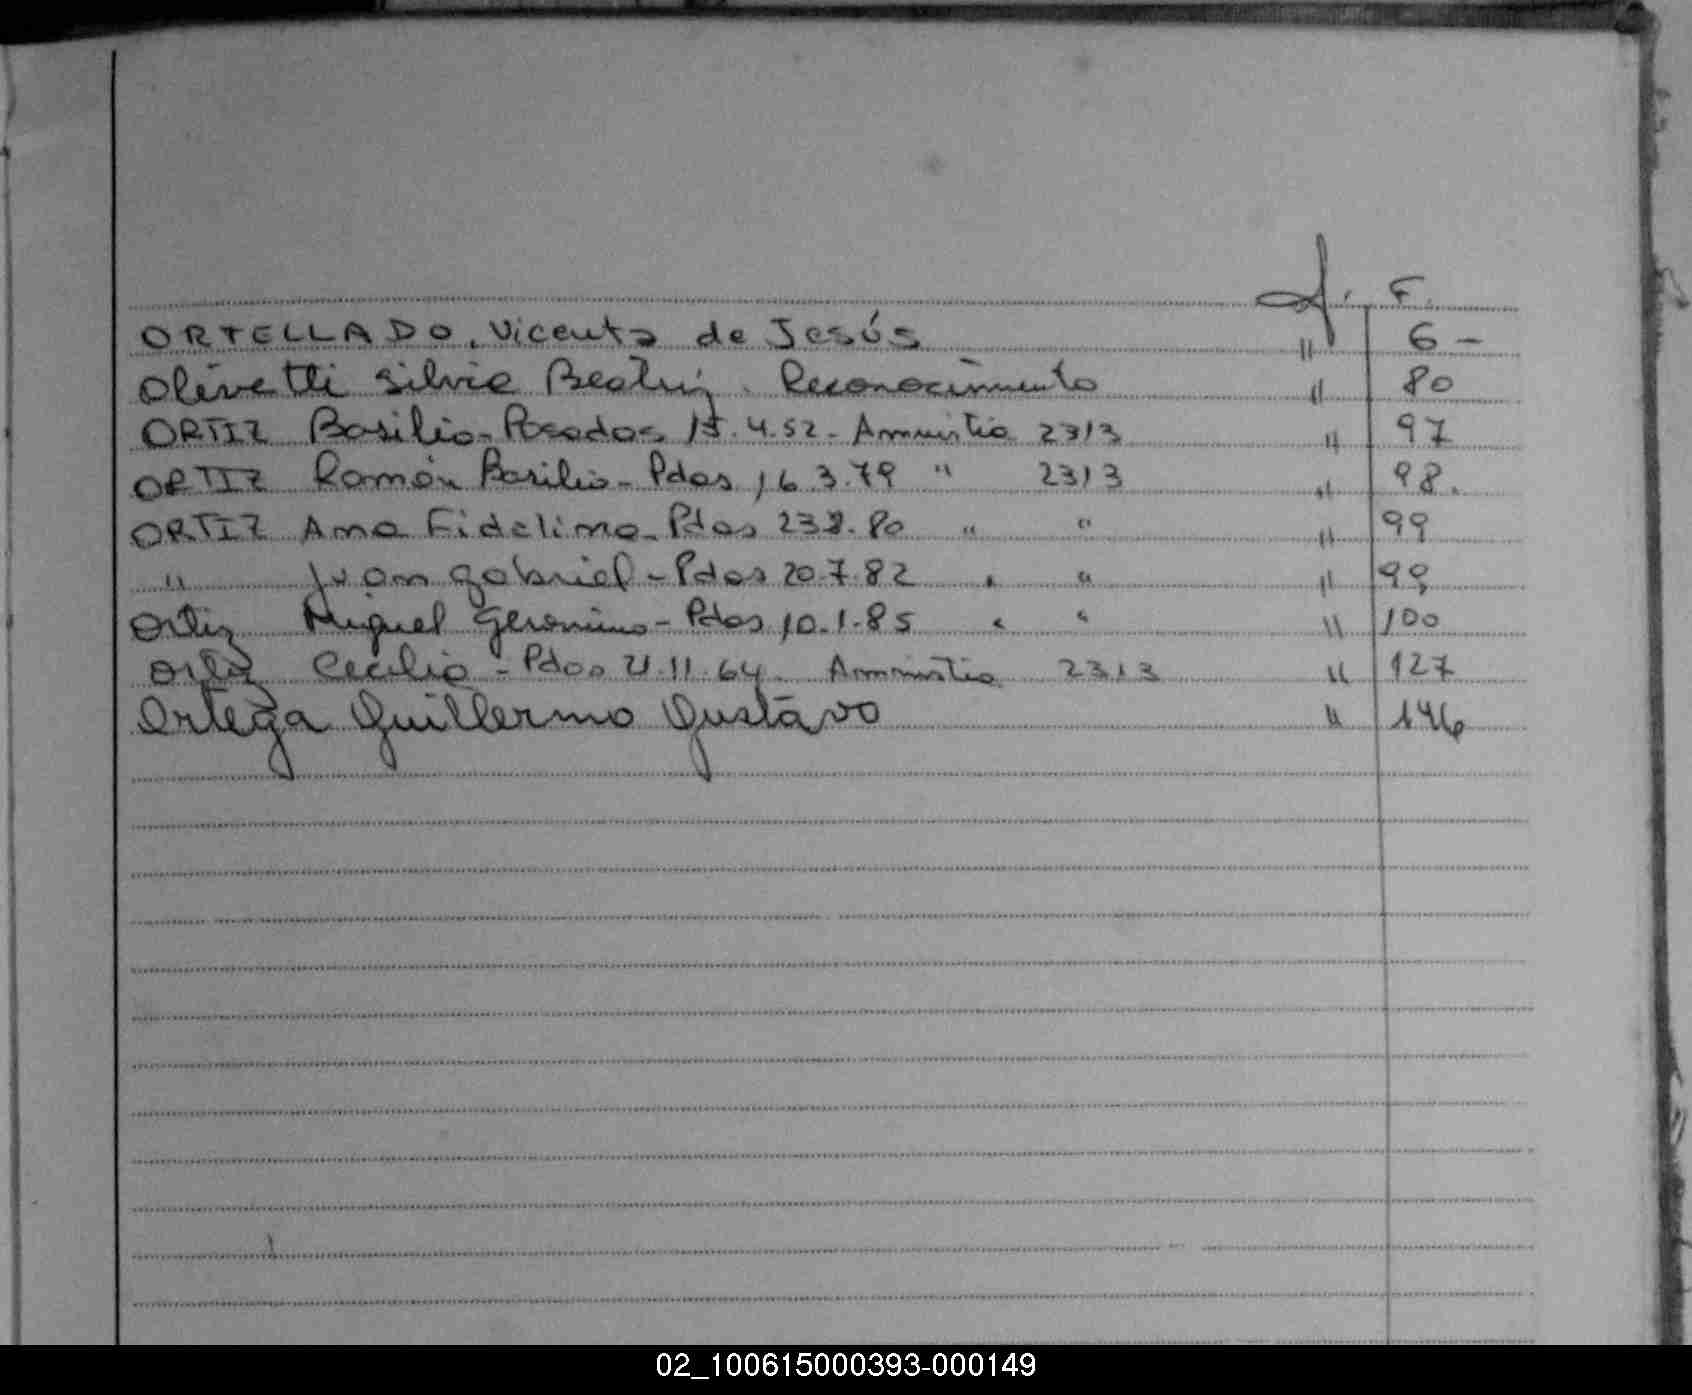 F.
ORTELLADO, Vicenta de Jesús " 6 -
Olivetti Silvia Beatriz. Reconocimiento " 80
ORTIZ Basilio - Posadas 15.4.52 - Amnistia 2313 " 97
ORTIZ Ramón Basilio - Pdas 16.3.79 " 2313 " 98.
ORTIZ Ana Fidelina - Pdas " " " 99
" Juan Gabriel - Pdas 20.7.82 " " " 99
Ortiz Miguel Geronimo - Pdas 10.1.85 " " " 100
Ortiz Cecilio - Pdas 21.11.64. Amnistia 2313 " 127
Ortega Guillermo Gustavo " 146
02_100615000393-000149